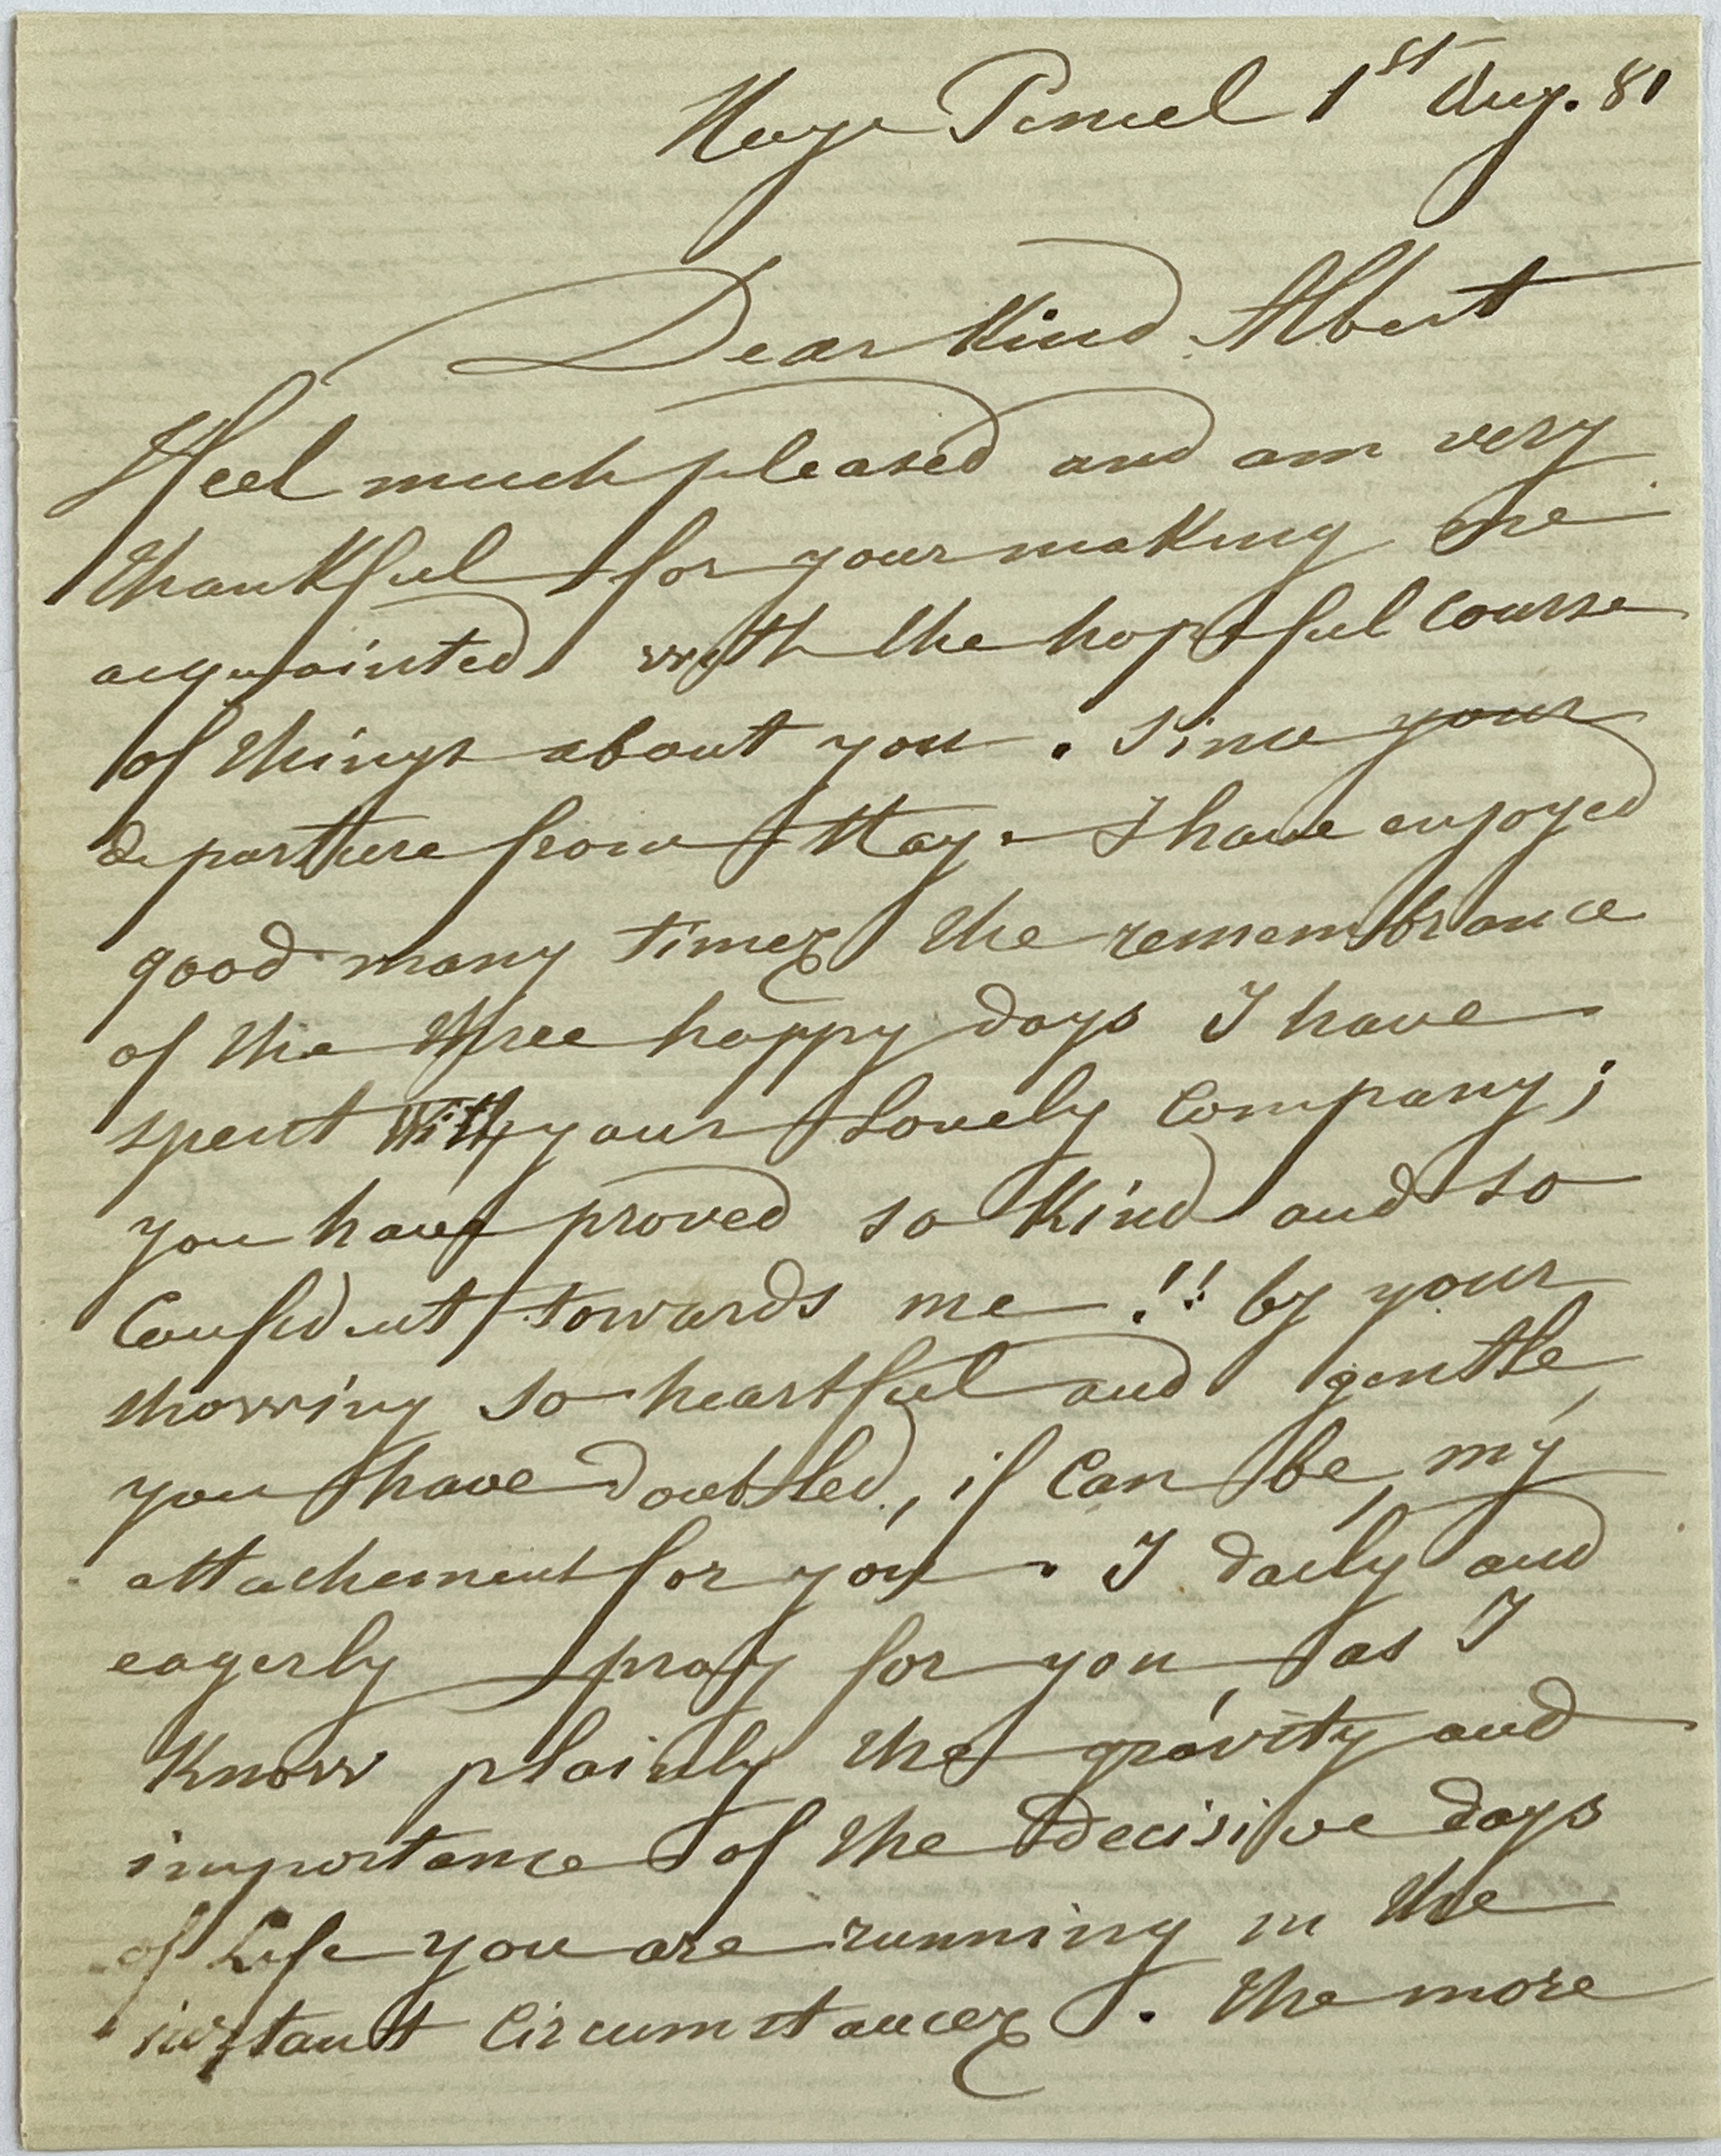 1st Aug. 81
Dear Kind Albert
I feel much pleased and am very
thankful for your making me
acquainted with the hopeful course
of things about you. Since your
departure from Hay. I have enjoyed
good many times the remembrance
of the three happy days I have
spent with your lovely Company;
you have proved so Kind and so
Confident towards me!! by your
showing so heartful and gentle,
you have doubled, if Can be, my
attachement for you. I daily and
eagerly pray for you, as I
Know plainly the gravity and
importance of the decisive days
of Life you are running in the
instant Circumstances. The more